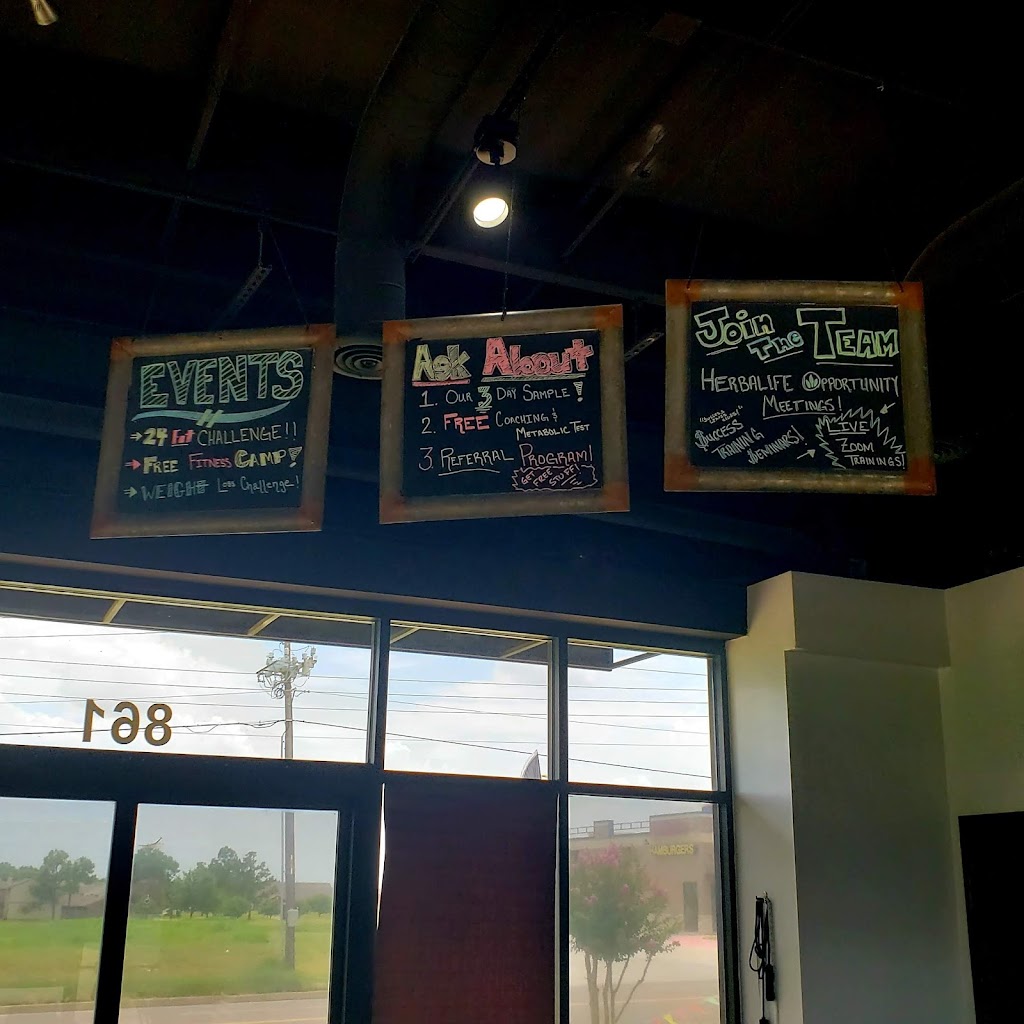 EVENTS
24 Fit CHALLENGE!!
FREE FITNESS CAMP!
WEIGHT Loss Challenge!
Ask About
1. OUR 3 DAY SAMPLE!
2. FREE COACHING &
METABOLIC TEST
3. REFERRAL PROGRAM!
GET FREE STUFF!
Join The TEAM
HERBALIFE OPPORTUNITY
MEETINGS!
SUCCESS
TRAINING
SEMINARS!
LIVE
ZOOM
TRAININGS!
861
HAMBURGERS